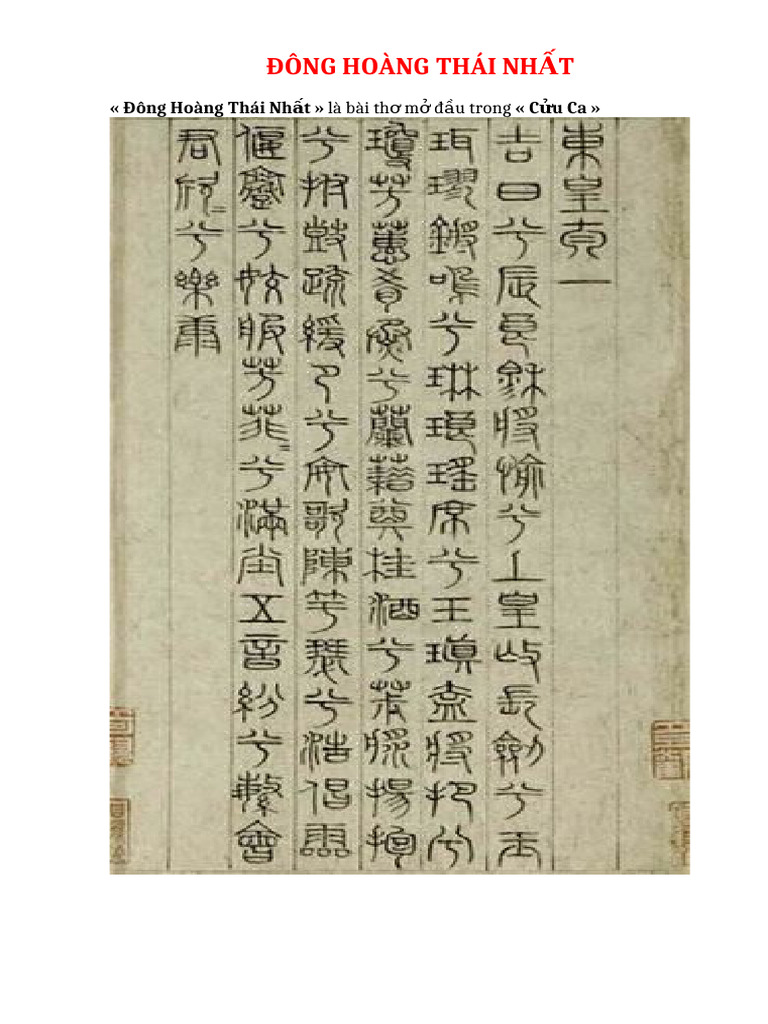 ĐÔNG HOÀNG THÁI NHẤT
« Đông Hoàng Thái Nhất » là bài thơ mở đầu trong « Cửu Ca »
東皇太一
吉日兮辰良穆將愉兮上皇撫長劍兮玉
珥璆鏘鳴兮琳琅瑤席兮玉瑱盍將把兮
瓊芳蕙肴蒸兮蘭藉奠桂酒兮椒漿揚枹
兮拊鼓疏緩節兮安歌陳竽瑟兮浩倡靈
偃蹇兮姣服芳菲=兮滿堂五音紛兮繁會
君欣=兮樂康